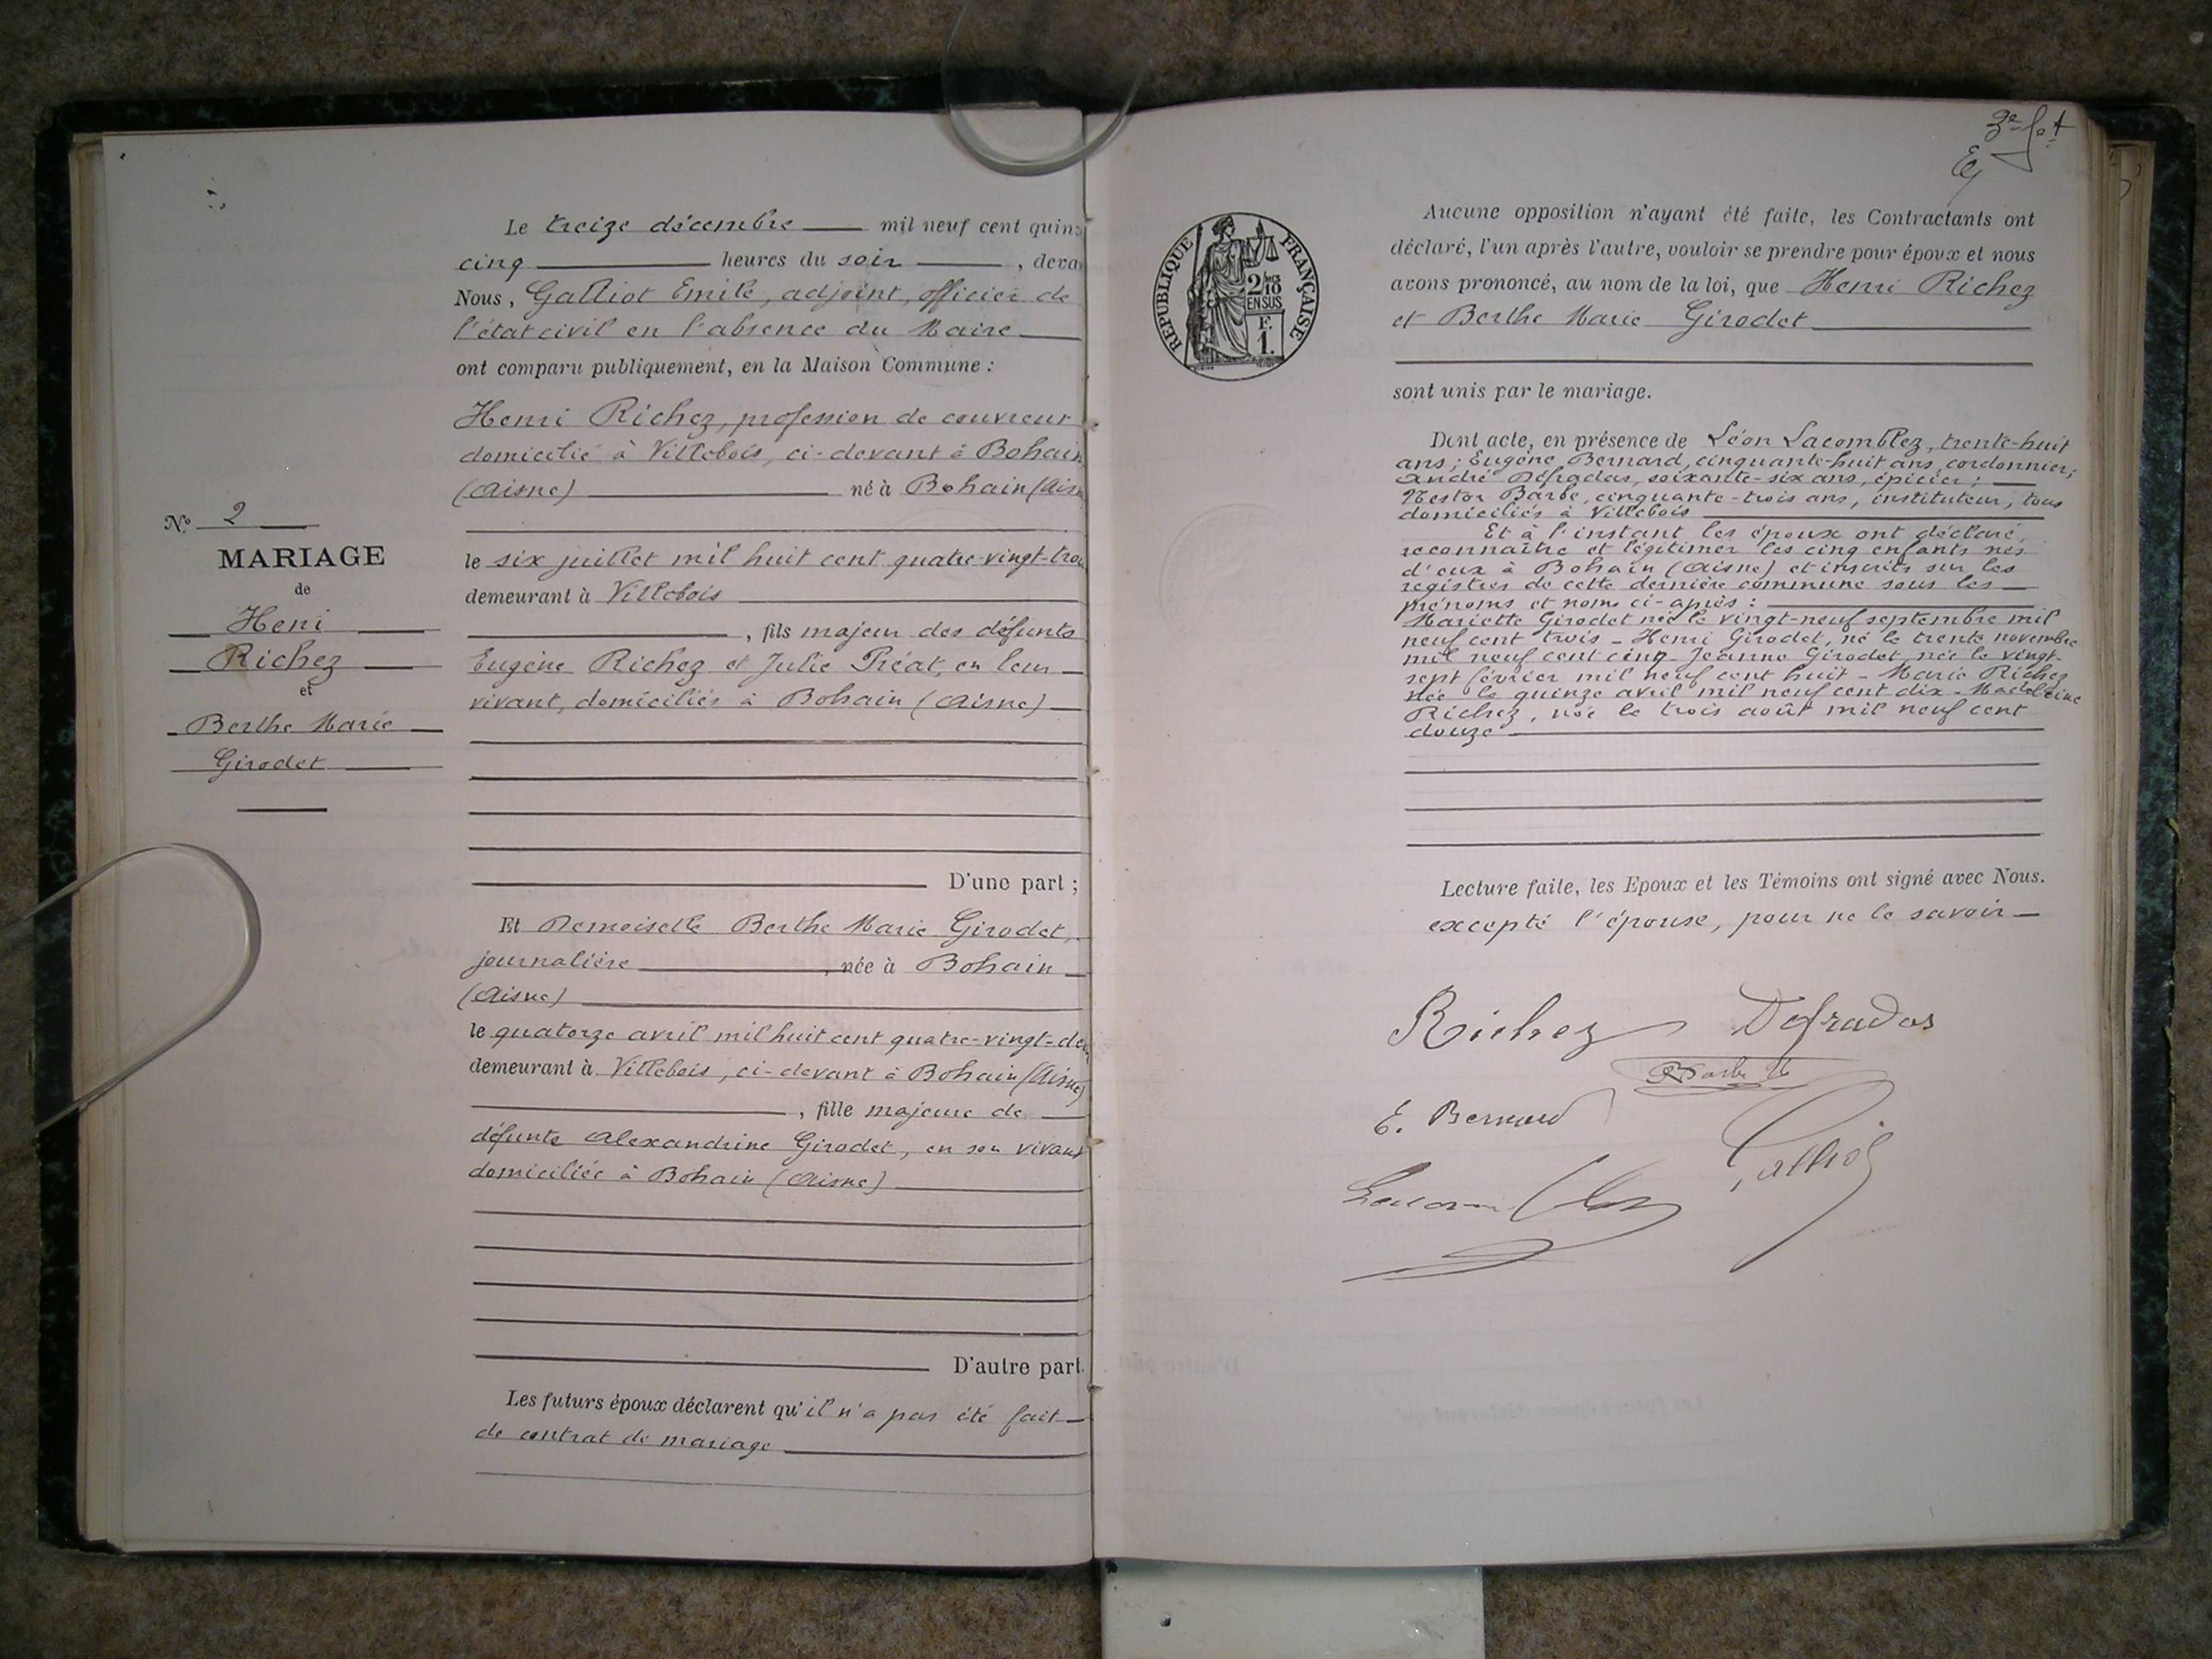 Le treize décembre mil neuf cent quin
cinq heures du soir , deva
Nous, Galliot Emile, adjoint, officier de
l'état civil en l'absence du Maire
ont comparu publiquement, en la Maison Commune :
Henri Richez, profession de couvreur
domicilié à Villebois, ci-devant à Bohain
(Aisne) né à Bohain (Ais
No 2
MARIAGE
de
Heni
Richez
et
Berthe Marie
Girodet
le six juillet mil huit cent quatre-vingt-troi
demeurant à Villebois
, fils majeur des défunts
Eugène Richez et Julie Préat, en leur
vivant, domiciliés à Bohain (Aisne)
D'une part ;
Et Demoiselle Berthe Marie Girodet,
journalière , née à Bohain
(Aisne)
le quatorze avril mil huit cent quatre-vingt-deu
demeurant à Villebois, ci-devant à Bohain (Aisne)
, fille majeure de
défunte Alexandrine Girodet, en son vivant
domiciliée à Bohain (Aisne)
D'autre part.
Les futurs époux déclarent qu'il n'a pas été fait
de contrat de mariage
3e f
RÉPUBLIQUE FRANÇAISE
2/10
EN SUS
F.
1.
Aucune opposition n'ayant été faite, les Contractants ont
déclaré, l'un après l'autre, vouloir se prendre pour époux et nous
avons prononcé, au nom de la loi, que Henri Richez
et Berthe Marie Girodet
sont unis par le mariage.
Dont acte, en présence de Léon Lacomblez, trente-huit
ans ; Eugène Bernard, cinquante-huit ans, cordonnier ;
André Défradas, soixante-six ans, épicier ;
Nestor Barbe, cinquante-trois ans, instituteur, tous
domiciliés à Villebois
Et à l'instant les époux ont déclaré,
reconnaître et légitimer les cinq enfants nés
d'eux à Bohain (Aisne) et inscrits sur les
registres de cette dernière commune sous les
prénoms et noms ci-après :
Mariette Girodet née le vingt-neuf septembre mil
neuf cent trois - Henri Girodet, né le trente novembre
mil neuf cent cinq - Jeanne Girodet née le vingt-
sept février mil neuf cent huit - Marie Richez
née le quinze avril mil neuf cent dix - Madeleine
Richez, née le trois août mil neuf cent
douze
Lecture faite, les Epoux et les Témoins ont signé avec Nous.
excepté l'épouse, pour ne le savoir
Richez Defradas
Barbe N
E. Bernard
Galliot
Lacomblez